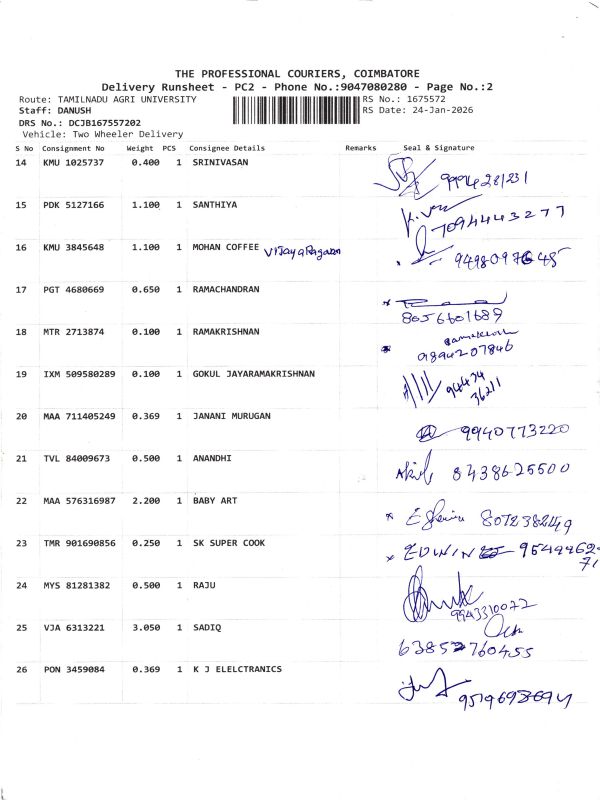 THE PROFESSIONAL COURIERS, COIMBATORE
Delivery Runsheet - PC2 - Phone No.:9047080280 - Page No.:2
Route: TAMILNADU AGRI UNIVERSITY RS No.: 1675572
Staff: DANUSH RS Date: 24-Jan-2026
DRS No.: DCJB167557202
Vehicle: Two Wheeler Delivery
S No Consignment No Weight PCS Consignee Details Remarks Seal & Signature
14 KMU 1025737 0.400 1 SRINIVASAN 9994281231
15 PDK 5127166 1.100 1 SANTHIYA 7094443277
16 KMU 3845648 1.100 1 MOHAN COFFEE Vijaya Ragavan
17 PGT 4680669 0.650 1 RAMACHANDRAN
8056601689
18 MTR 2713874 0.100 1 RAMAKRISHNAN
9894207846
19 IXM 509580289 0.100 1 GOKUL JAYARAMAKRISHNAN 94434
36211
20 MAA 711405249 0.369 1 JANANI MURUGAN 9940773220
21 TVL 84009673 0.500 1 ANANDHI 8438625500
22 MAA 576316987 2.200 1 BABY ART 8072382449
23 TMR 901690856 0.250 1 SK SUPER COOK EDWIN
24 MYS 81281382 0.500 1 RAJU
9943310072
25 VJA 6313221 3.050 1 SADIQ
6385760455
26 PON 3459084 0.369 1 K J ELELCTRANICS